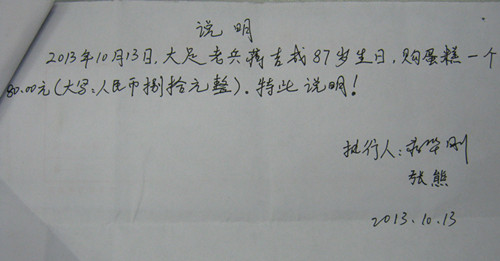 说明
2013年10月13日,大足老兵蒋吉成87岁生日,购蛋糕一个
80.00元(大写:人民币捌拾元整).特此说明!
执行人:
张熊
2013.10.13